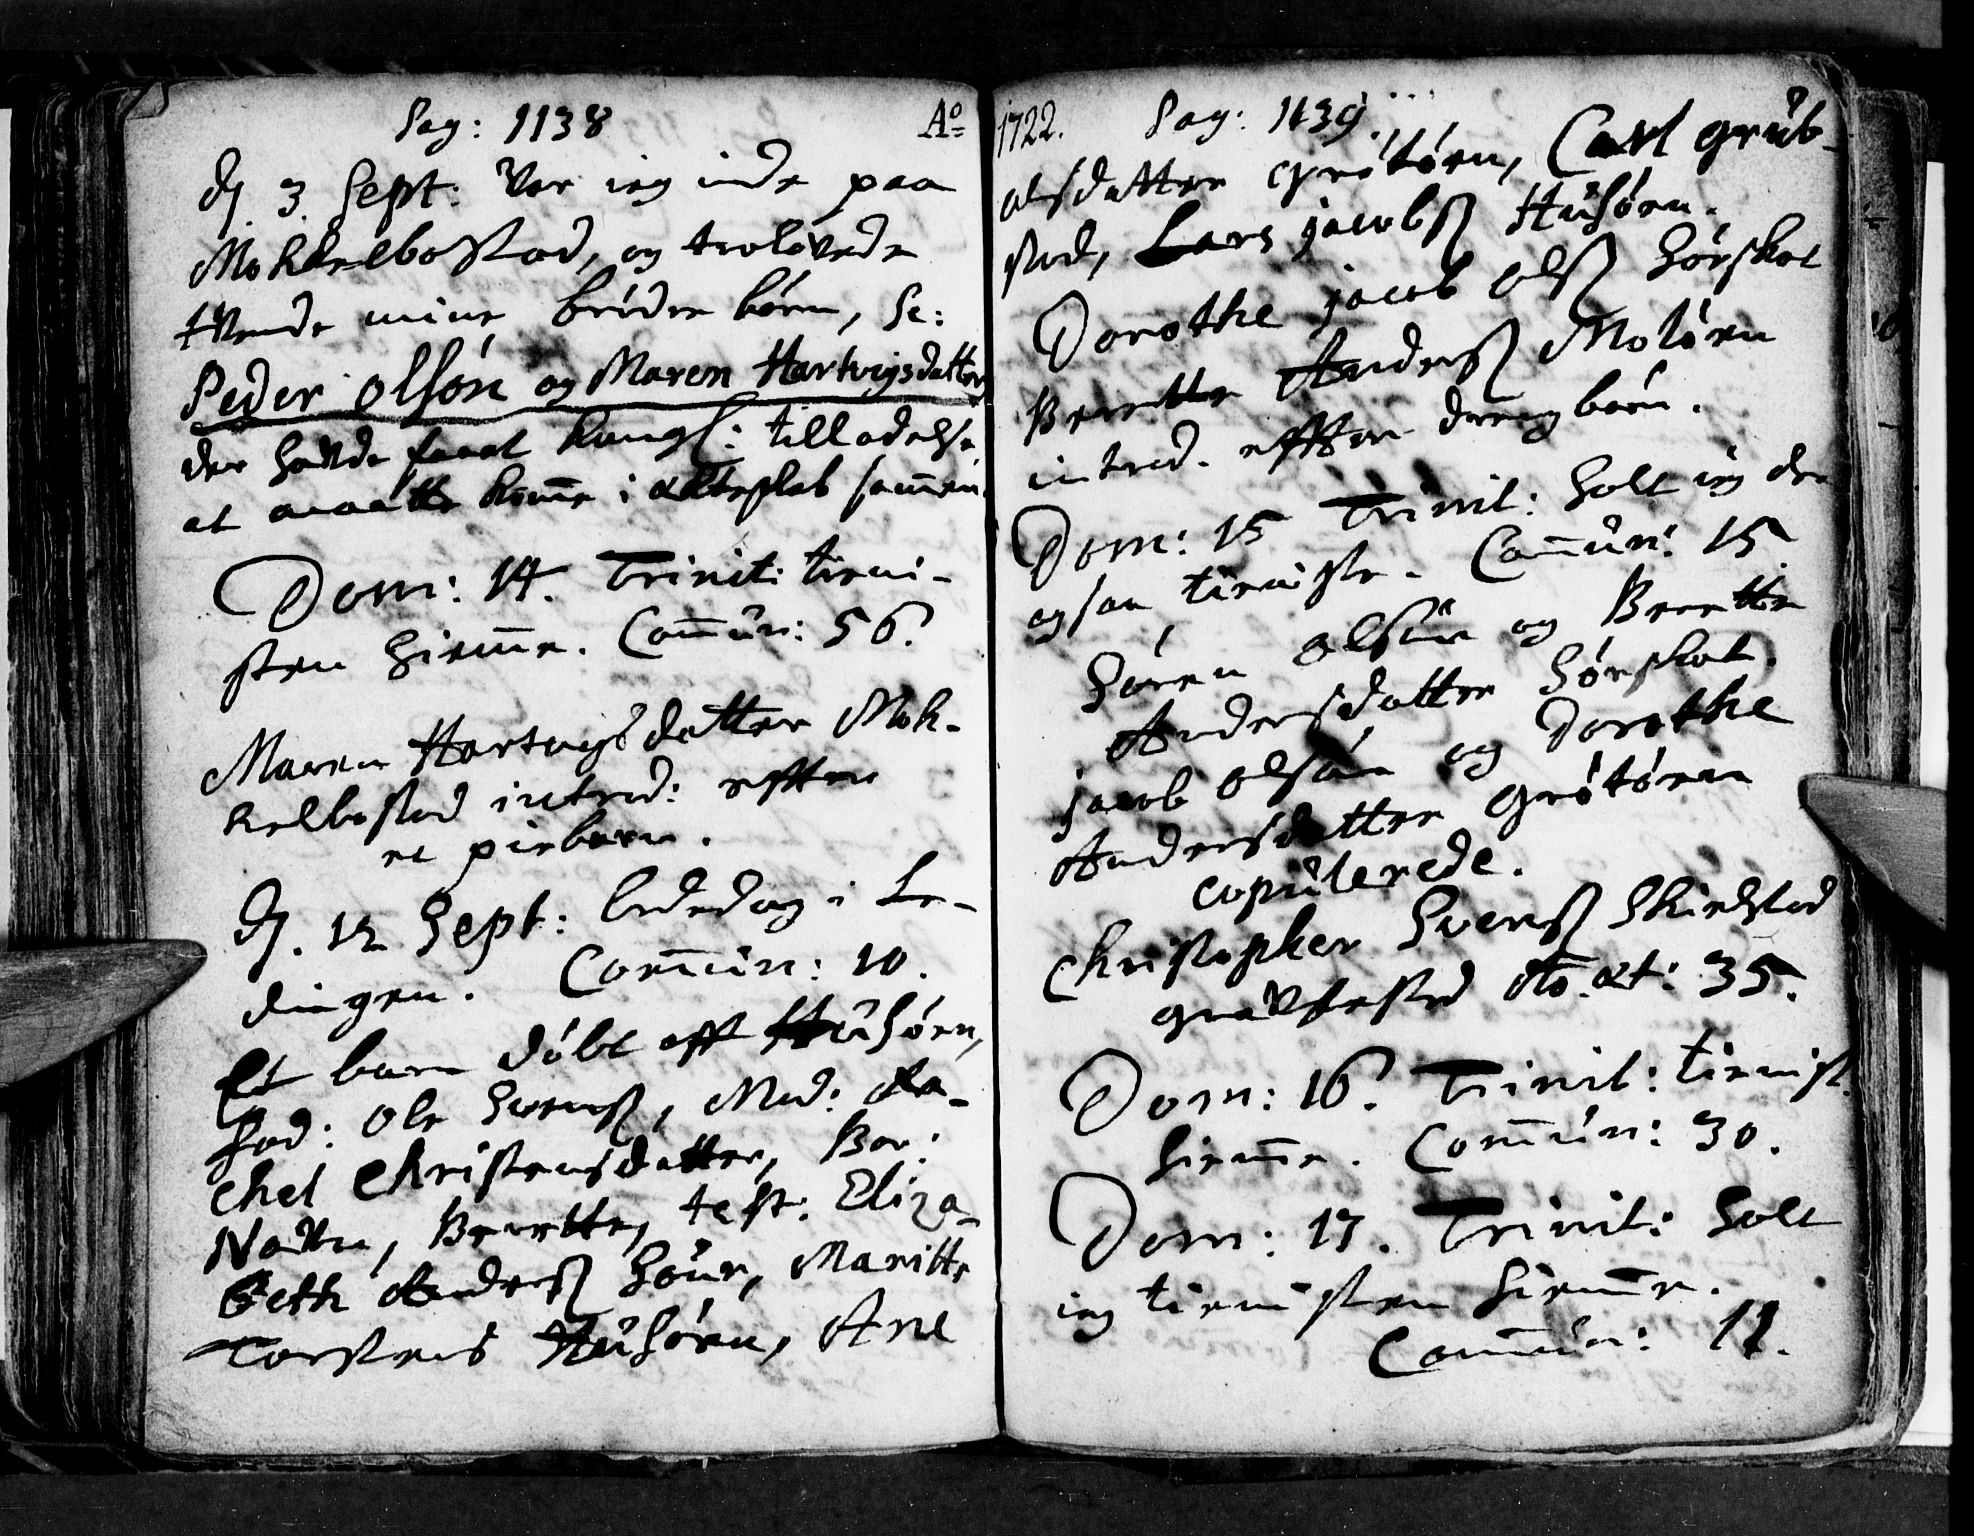 Pag: 1138
Ao
dj. 3. Sept: Var ieg inde paa
Mohkelbostad, og trolovede
tvende mine brödre börn, Sc:
Peder olsön og Maren Hartvigsdatter
der hafde faaet Kongl: tilladelse
at maatte komme i ækteskab sammen.
Dom: 14. Trinit: tieni-
sten hiemme. Commun: 56.
Maren Hartvigsdatter Moh-
kelbostad introd: effter
et piebarn.
dj. 12 Sept: bededag i Le-
dingen. Commun: 10.
Et barn döbt aff Husören,
Fad: Ole Svenss, Mod: Ra-
chel Christensdatter, Bar:
Nafn, Berette, test: Eliza-
beth Anderss Höur, Maritte
Torstens Husören, Ane
1722. Pag: 1139
olsdatter Grötören, Carl grub-
stad, Lars jacobss Husören.
Dorothe jacob Olss Hörskot
Berette Anderss Molören
introd. effter drengbörn.
Dom: 15 Trinit: holt ieg der
ogsaa tieniste. Commun: 15.
Sören olsön og Berette
Andersdatter Hörskot.
jacob olsön og Dorothe
Andersdatter Grötören
copulerede.
Christopher Svenss Skielstad
grafsted Ao. æt: 35.
Dom: 16. Trinit: tienist.
hiemme. Commun: 30.
Dom: 17. Trinit: holt
ieg tienisten hiemme.
Commun: 11.